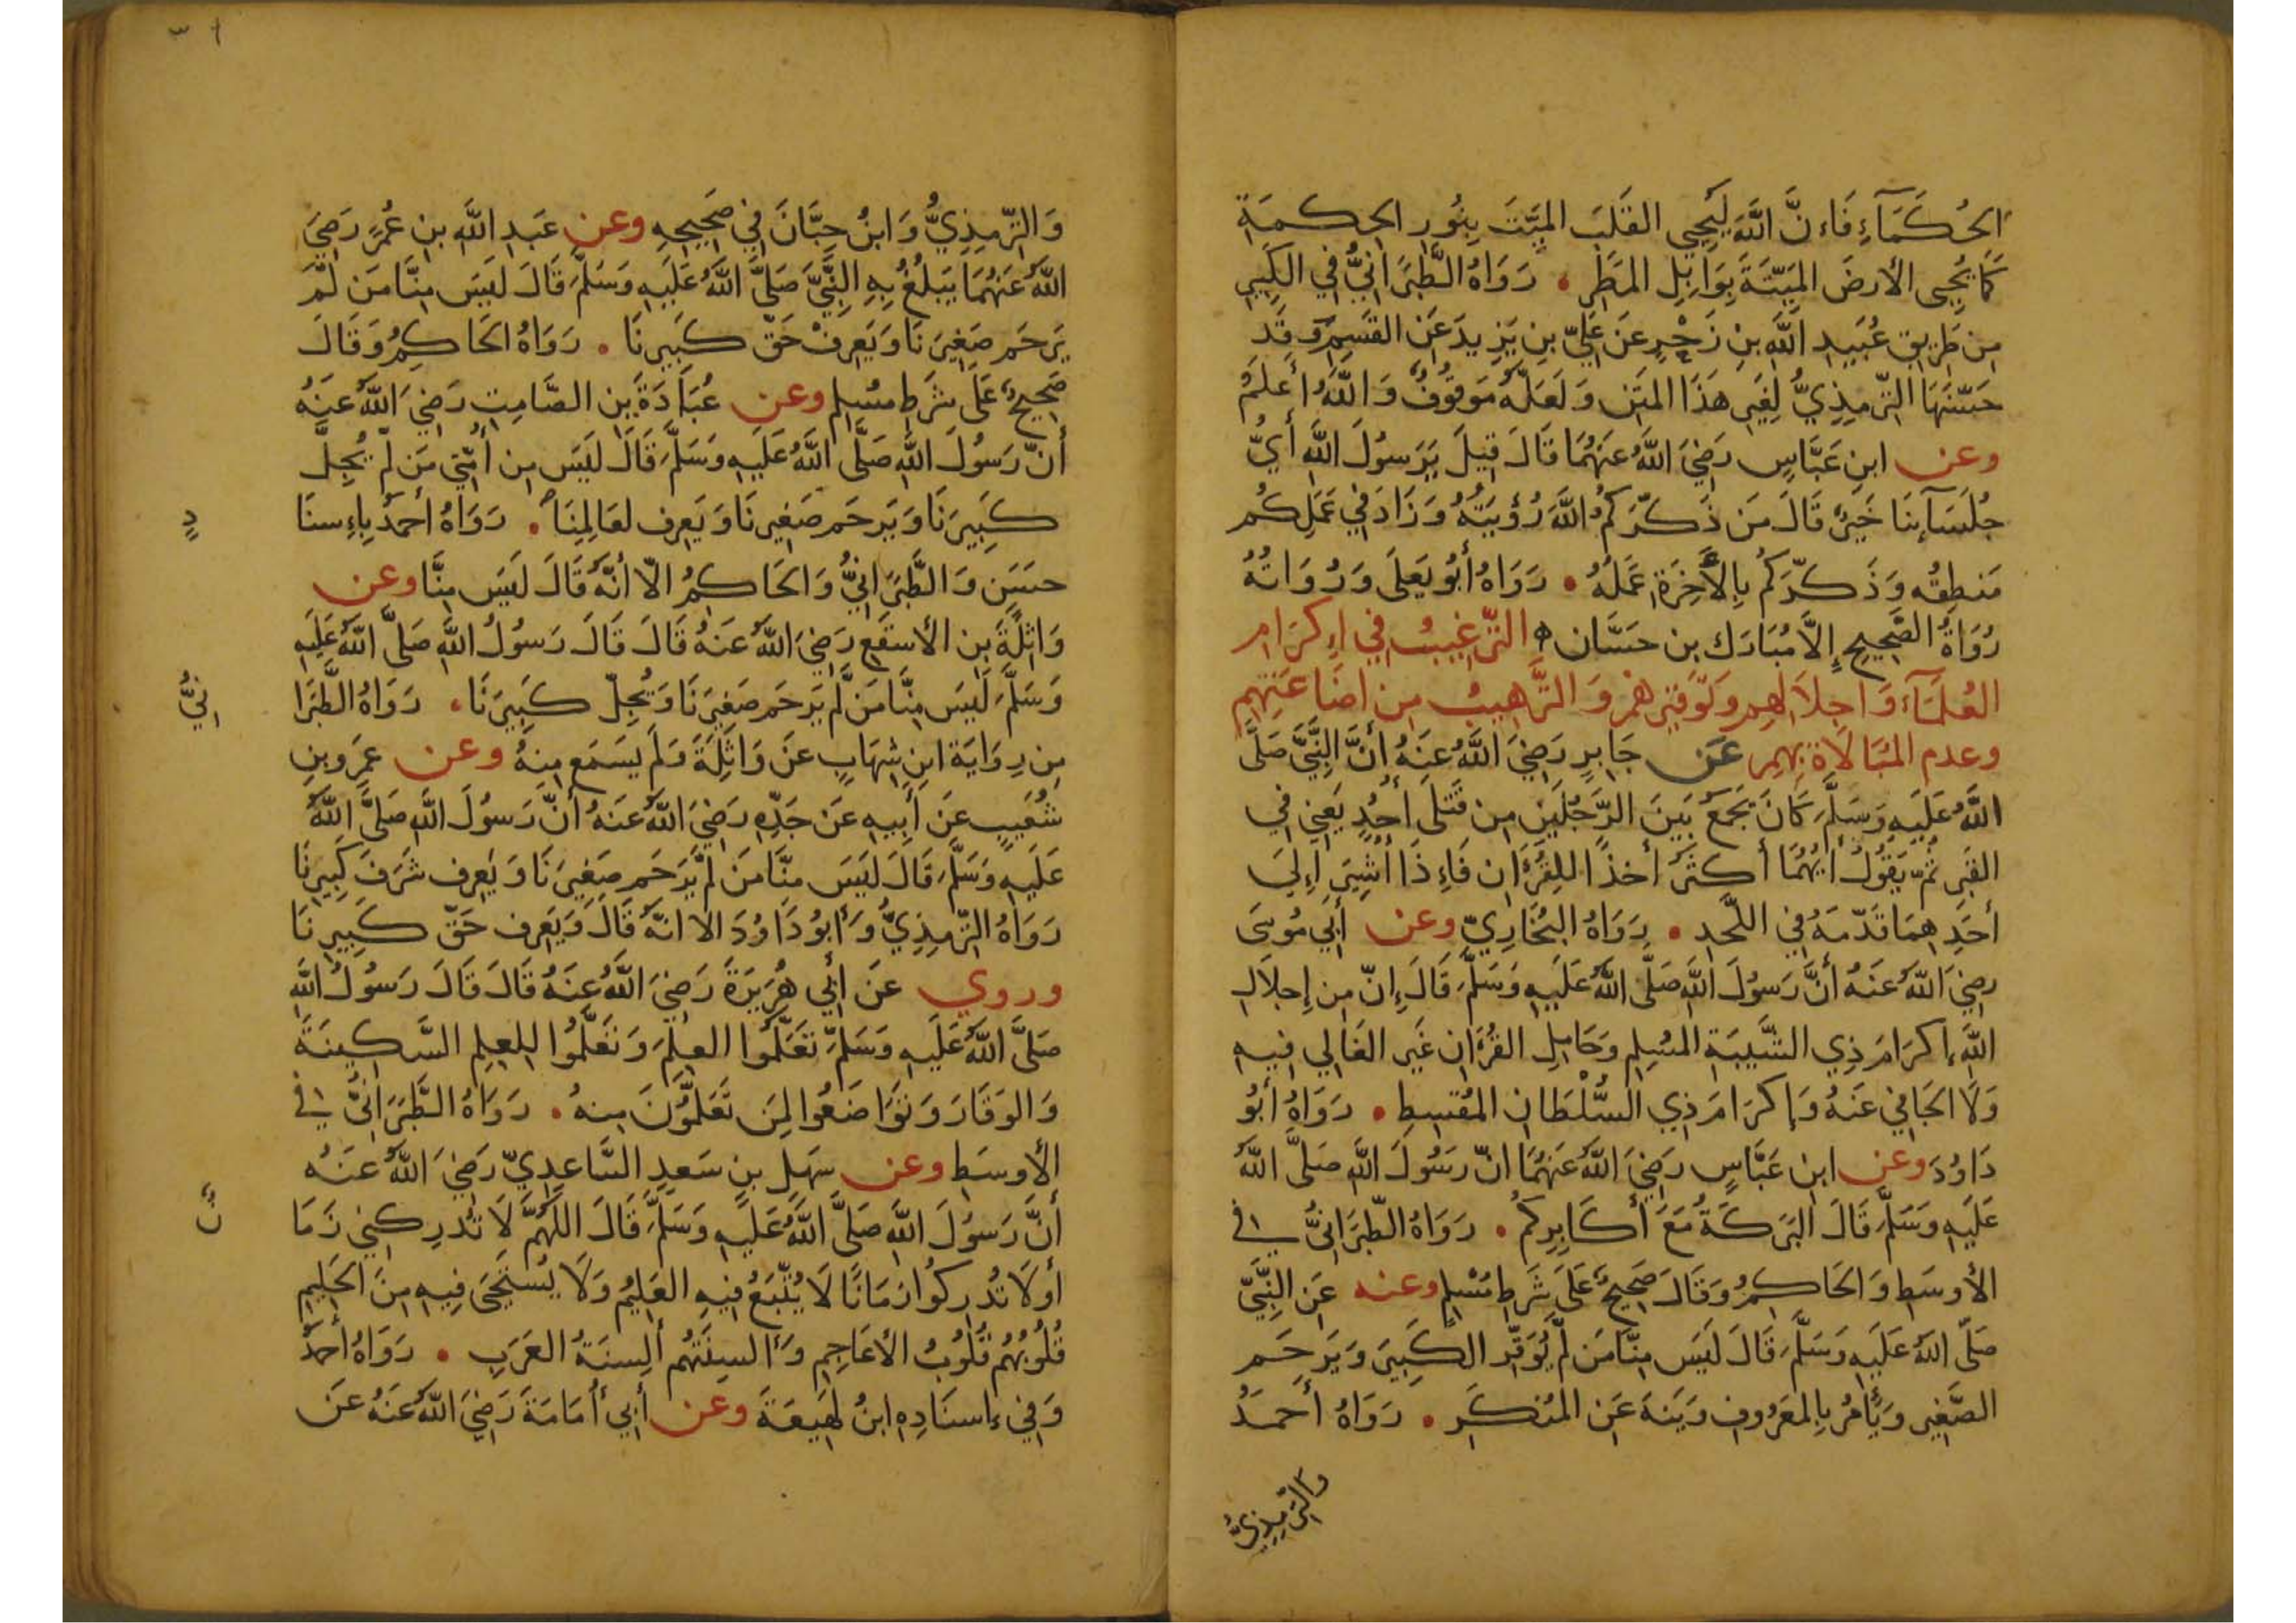 الحُكَمَآءِ فَاءِنَّ اللَّهَ لَيُحيِي القَلبَ المَيِّتَ بِنُورِ الحِكمَةِ
كَمَا يُحيِى الأَرضَ المَيِّتَةَ بِوَابِلِ المَطَرِ . رَوَاهُ الطَّبَرَانِيُّ فِي الكَبِيرِ
مِن طَرِيقِ عُبَيدِ اللَّهِ بنِ زَحْرٍ عَن عَلِيِّ بنِ يَزِيدَ عَنِ القسِمِ وَقَد
حَسَّنَهَا التِّرمِذِيُّ لِغَيرِ هَذَا المَتنِ وَلَعَلَّهُ مَوقُوفٌ وَاللَّهُ أَعلَمُ
وعن ابنِ عَبَّاسٍ رَضِيَ اللَّهُ عَنهُمَا قَالَ قِيلَ يَرَسُولَ اللَّهِ أَيُّ
جُلَسَآئِنَا خَيرٌ قَالَ مَن ذَكَّرَكُمُ اللَّهَ رُؤيَتُهُ وَزَادَ فِي عَمَلِكُم
مَنطِقُه وَذَكَّرَكُم بِالأَخِرَةِ عَمَلُهُ . رَوَاهُ أَبُو يَعلَى وَرُوَاتُهُ
رُوَاةُ الصَّحِيحِ إِلاَّ مُبَارَك بن حَسَّان ه التَّرغِيبُ فِي اءِكرَامِ
العُلَمَآءِ وَاجِلاَلِهِم وَتَوقِيرِهِم وَالتَّرهِيبُ مِن اضَاعَتِهِم
وعدم المُبَالَاةِ بِهِم عَن جَابِرٍ رَضِيَ اللَّهُ عَنهُ أَنَّ النَّبِيَّ صَلَّى
اللَّهُ عَلَيهِ وَسَلَّمَ كَانَ يَجمَعُ بَينَ الرَّجُلَينِ مِن قَتلَى أُحُدٍ يَعنِي فِي
القَبرِ ثُمَّ يَقُولُ أَيُّهُمَا أَكثَرُ أَخذًا لِلقُرءَانِ فَاءِذَا أُشِيرَ اءِلَي
أَحَدِهِمَا قَدَّمَهُ فِي اللَّحدِ . رَوَاهُ البُخَارِيّ وعن أَبِي مُوسَى
رضِيَ اللَّهُ عَنهُ أَنَّ رَسُولَ اللَّهِ صَلَّى اللَّهُ عَلَيهِ وَسَلَّمَ قَالَ إِنَّ مِن إِجلَالِ
اللَّهِ اِكرَامَ ذِي الشَّيبَةِ المُسلِمِ وَحَامِلِ القُرءَانِ غَيرِ الغَالِي فِيهِ
وَلَا الجَافِي عَنهُ وَإِكرَامَ ذِي السُّلْطَانِ المُقسِطِ . رَوَاهُ أَبُو
دَاوُدَ وعن ابنِ عَبَّاسٍ رَضِيَ اللَّهُ عَنهُمَا انَّ رَسُولَ اللَّهِ صَلَّى اللَّهُ
عَلَيهِ وَسَلَّمَ قَالَ البَرَكَةُ مَعَ أَكَابِرِكُم . رَوَاهُ الطَّبَرَانِيُّ فِي
الأَوسَطِ وَالحَاكِمُ وَقَالَ صَحِيحٌ عَلَى شَرطِ مُسْلِمٍ وعنه عَنِ النَّبِيِّ
صَلَّى اللَّهُ عَلَيهِ وَسَلَّمَ قَالَ لَيسَ مِنَّا مَن لَّم يُوَقِّرِ الكَبِيرَ وَيَرحَم
الصَّغِيرَ وَيَأمُر بِالمَعرُوفِ وَيَنهَ عَنِ المُنكَرِ . رَوَاهُ أَحمَدُ
والتِّرمِذِيُّ
وَالتِّرمِذِيُّ وَابنُ حِبَّانَ فِي صَحِيحِهِ وعن عَبدِ اللَّهِ بنِ عُمَرَ رَضِيَ
اللَّهُ عَنهُمَا يَبلُغُ بِهِ النَّبِيَّ صَلَّى اللَّهُ عَلَيهِ وَسَلَّمَ قَالَ لَيسَ مِنَّا مَن لَّم
يَرحَم صَغِيرَنَا وَيَعرِفْ حَقَّ كَبِيرِنَا . رَوَاهُ الحَاكِمُ وَقَالَ
صَحِيحٌ عَلَى شَرطِ مُسلِمٍ وعن عُبَادَةَ بنِ الصَّامِتِ رَضِيَ اللَّهُ عَنهُ
أَنَّ رَسُولَ اللَّهِ صَلَّى اللَّهُ عَلَيهِ وَسَلَّمَ قَالَ لَيسَ مِن أُمَّتِي مَن لَم يُجِلَّ
كَبِيرَنَا وَيَرحَم صَغِيرَنَا وَيَعرِف لعَالِمِنَا . رَوَاهُ أَحمَدُ بِاءِسنَا
دٍ
حسَنٍ وَالطَّبَرَانِيُّ وَالحَاكِمُ الّا أَنَّهُ قَالَ لَيسَ مِنَّا وعن
وَاثِلَةَ بنِ الأَسقَعِ رَضِيَ اللَّهُ عَنهُ قَالَ قَالَ رَسُولُ اللَّهِ صَلَّى اللَّهُ عَلَيهِ
وَسَلَّمَ لَيسَ مِنَّا مَن لَّم يَرحَم صَغِيرَنَا وَيُجِلّ كَبِيرَنَا . رَوَاهُ الطَّبَرَا
نِيُّ
مِن رِوَايَةِ ابنِ شِهَابٍ عَن وَاثِلَةَ وَلَم يَسمَع مِنهُ وعن عَمرِو بنِ
شُعَيبٍ عَن أَبِيهِ عَن جَدِّهِ رَضِيَ اللَّهُ عَنهُ أَنَّ رَسُولَ اللَّهِ صَلَّى اللَّهُ
عَلَيهِ وَسَلَّمَ قَالَ لَيسَ منَّا مَن لَّم يَرحَم صَغِيرَنَا وَيَعرِف شَرَفَ كَبِيرِنَا
رَوَاهُ التِّرمِذِيُّ وَأَبُو دَاوُدَ الا انَّهُ قَالَ وَيَعرِف حَقّ كَبِيرِنَا
وروي عَن أَبِي هُرَيرَةَ رَضِيَ اللَّهُ عَنهُ قَالَ قَالَ رَسُولُ اللَّهِ
صَلَّى اللَّهُ عَلَيهِ وَسَلَّمَ تَعَلَّمُوا العِلمَ وَتَعَلَّمُوا لِلعِلمِ السَّكِينَةَ
وَالوَقَارَ وَتَوَاضَعُوا لِمَن تَعَلَّمُونَ مِنهُ . رَوَاهُ الطَّبَرَانِيُّ فِي
الأَوسَطِ وعن سَهلِ بنِ سَعدٍ السَّاعِدِيِّ رَضِيَ اللَّهُ عَنهُ
أَنَّ رَسُولَ اللَّهِ صَلَّى اللَّهُ عَلَيهِ وَسَلَّمَ قَالَ اللَّهُمَّ لَا تُدرِكنِي زَمَا
نٌ
أَولَا تُدرِكُوا زَمَانًا لَا يُتَّبَعُ فِيهِ العَلِيمُ وَلَا يُستَحيَى فِيهِ مِنَ الحَلِيمِ
قُلُوبُهُم قُلُوبُ الأَعَاجِمِ وَأَلسِنَتُهُم أَلسِنَةُ العَرَبِ . رَوَاهُ أَحمَدُ
وَفِي اِسنَادِهِ ابنُ لَهِيعَةَ وعَن أَبِي أُمَامَةَ رَضِيَ اللَّهُ عَنهُ عَن